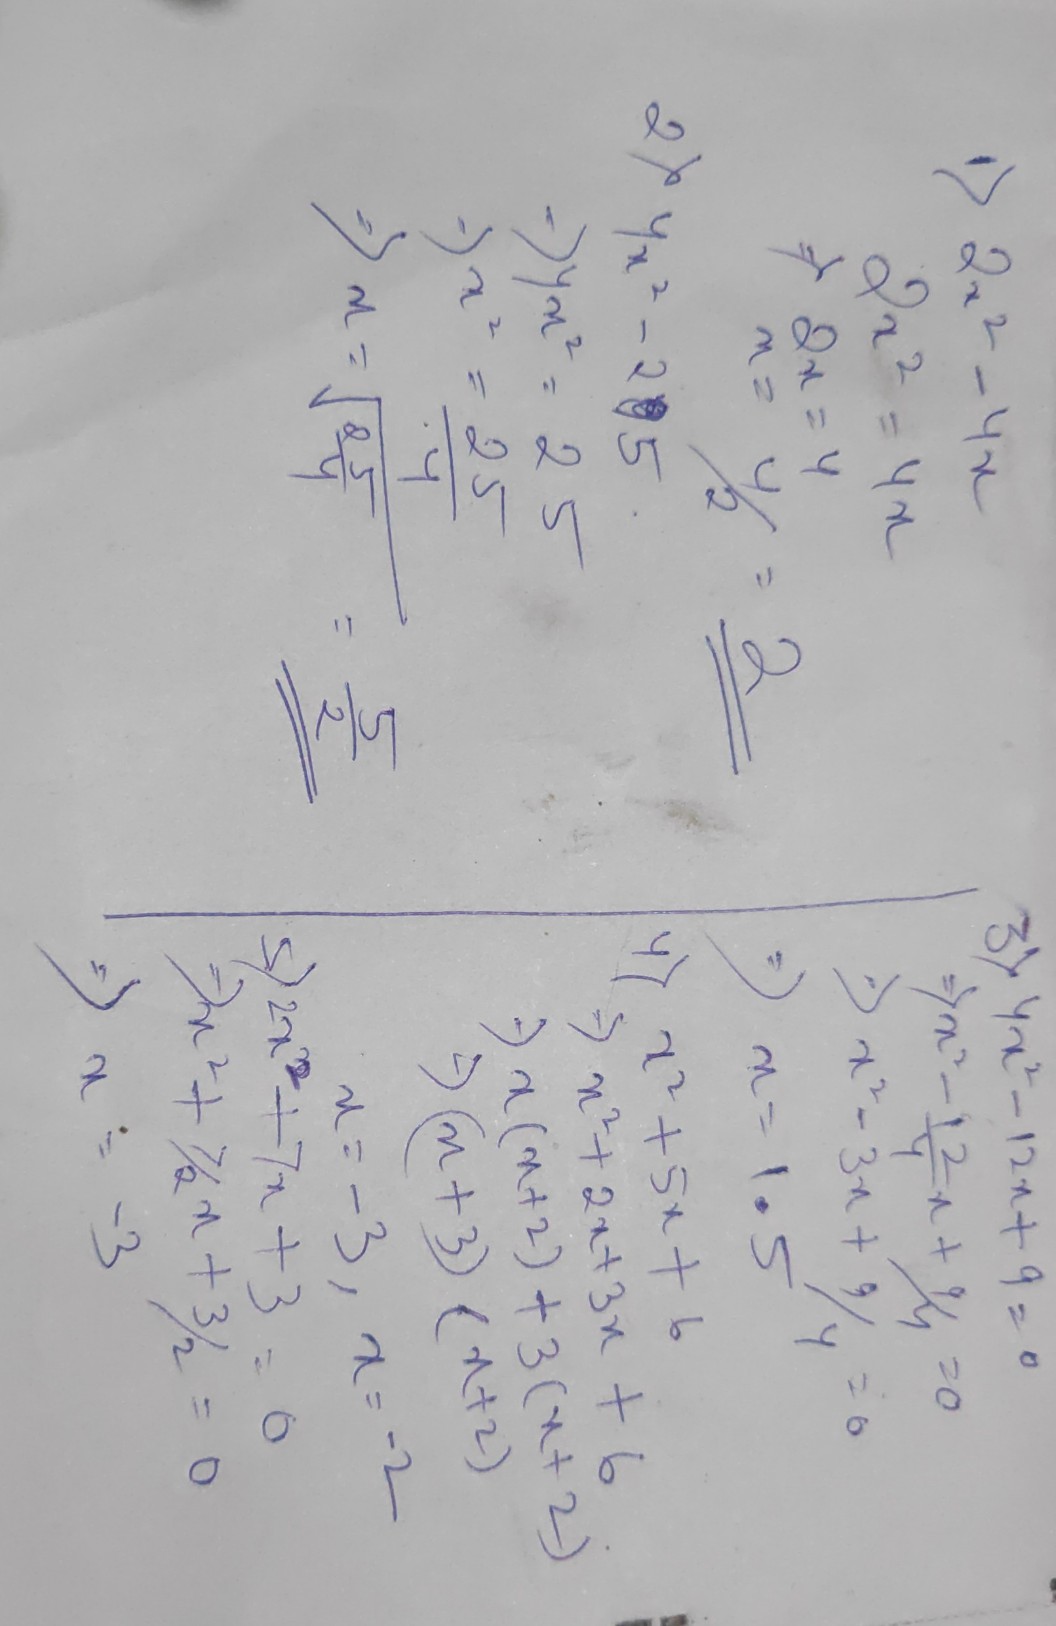 1) 2x² - 4x
2x² = 4x
⇒ 2x = 4
x = 4/2 = 2
2) 4x² - 25
⇒ 4x² = 25
⇒ x² = 25/4
⇒ x = √25/4 = 5/2
3) 4x² - 12x + 9 = 0
⇒ x² - 12/4 x + 9/4 = 0
⇒ x² - 3x + 9/4 = 0
⇒ x = 1.5
4) x² + 5x + 6
⇒ x² + 2x + 3x + 6
⇒ x(x+2) + 3(x+2)
⇒ (x+3) (x+2)
x = -3, x = -2
5) 2x² + 7x + 3 = 0
⇒ x² + 7/2 x + 3/2 = 0
⇒ x = -3